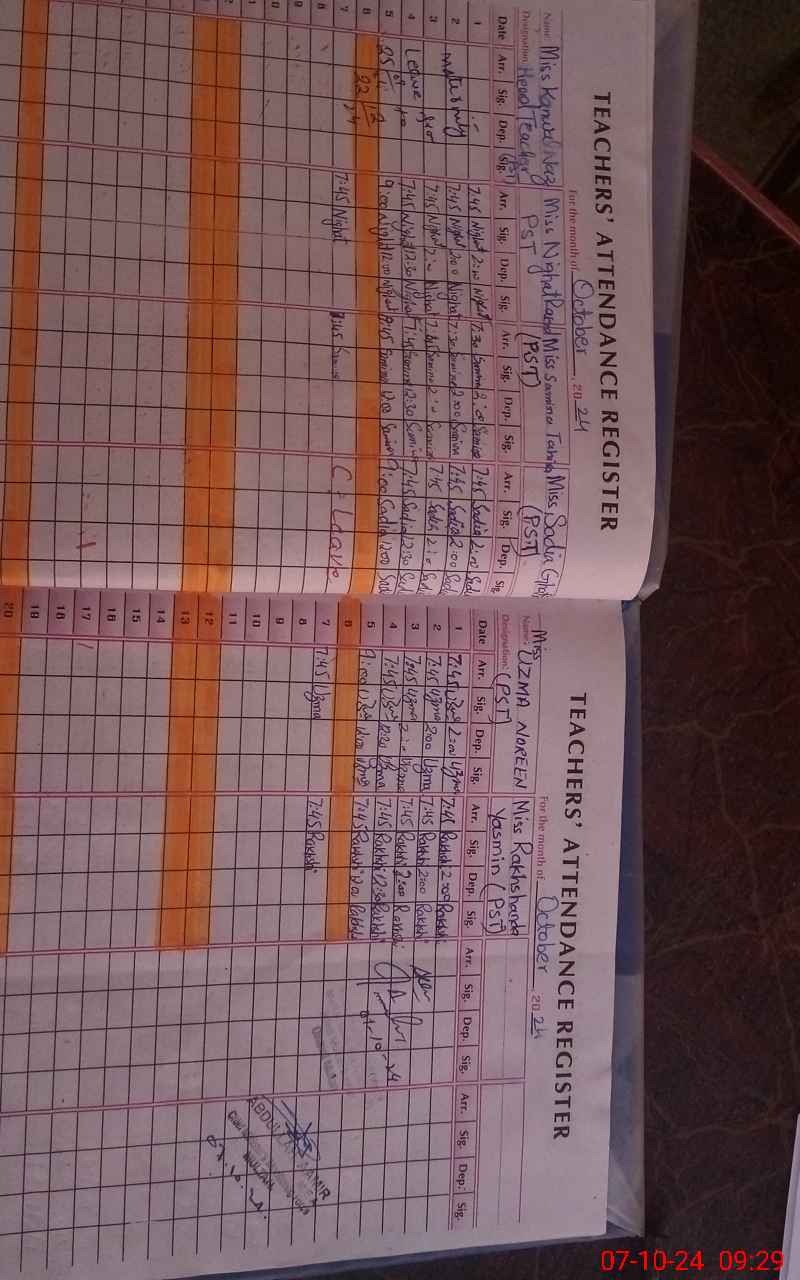 TEACHERS' ATTENDANCE REGISTER
For the month of October, 2024
Name: Miss Kanwal Naz Miss Nighat Miss Samina Tahir Miss Sadia
Designation: Head Teacher (PST) PST (PST) (PST)
Date Arr. Sig. Dep. Sig. Arr. Sig. Dep. Sig. Arr. Sig. Dep. Sig. Arr. Sig. Dep. Sig
1 7:45 Nighat 2:00 Nighat 7:30 Samina 2:00 Samina 7:45 Sadia 2:00
2 maternity 7:45 Nighat 2:00 Nighat 7:30 Samina 2:00 Samina 7:45 Sadia 2:00
3 7:45 Nighat 2:00 Nighat 7:45 Samina 2:00 Samina 7:45 Sadia 2:00
4 Leave 7:45 Nighat 12:30 Nighat 7:45 Samina 12:30 Samina 7:45 Sadia 12:30
5 9:00 Nighat 12:00 Nighat Samina 12:00 Samina 9:00 Sadia 12:00
6
7 7:45 Nighat 7:45 C. Leave
8
9
10
11
12
TEACHERS' ATTENDANCE REGISTER
For the month of October, 2024
Name: Miss UZMA NOREEN Miss Rakhshanda Yasmin
Designation: (PST) (PST)
Date Arr. Sig. Dep. Sig. Arr. Sig. Dep. Sig. Arr. Sig. Dep. Sig. Arr. Sig. Dep. Sig.
1 7:45 Uzma 2:00 Uzma 7:45 Rakhshi 2:00 Rakhshi
2 7:45 Uzma 2:00 Uzma 7:45 Rakhshi 2:00 Rakhshi
3 7:45 Uzma 2:00 Uzma 7:45 Rakhshi 2:00 Rakhshi
4 7:45 Uzma 12:30 Uzma 7:45 Rakhshi 12:30 Rakhshi
5 9:00 Uzma 12:00 Uzma 7:45 Rakhshi 12:00 Rakhshi
6
7 7:45 Uzma 7:45 Rakhshi
8
9
10
11
12
13
14
15
16
17
18
19
20
07-10-24 09:29